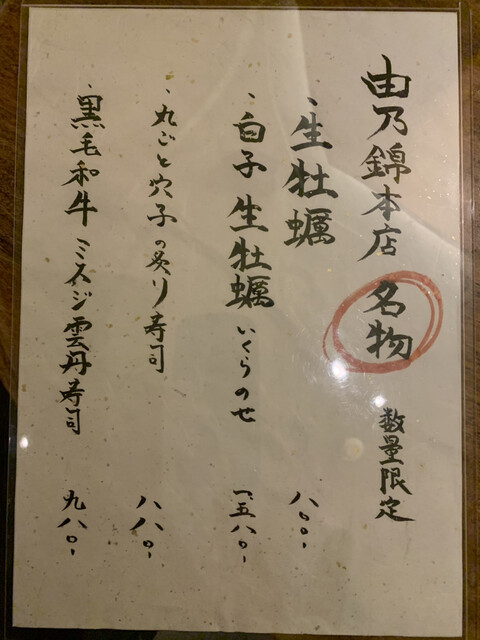 由乃錦本店 名物 数量限定
・生牡蠣 八〇〇、
・白子生牡蠣いくらのせ 一、五八〇、
・丸ごと穴子の炙り寿司 八八〇、
・黒毛和牛ミスジ雲丹寿司 九八〇、